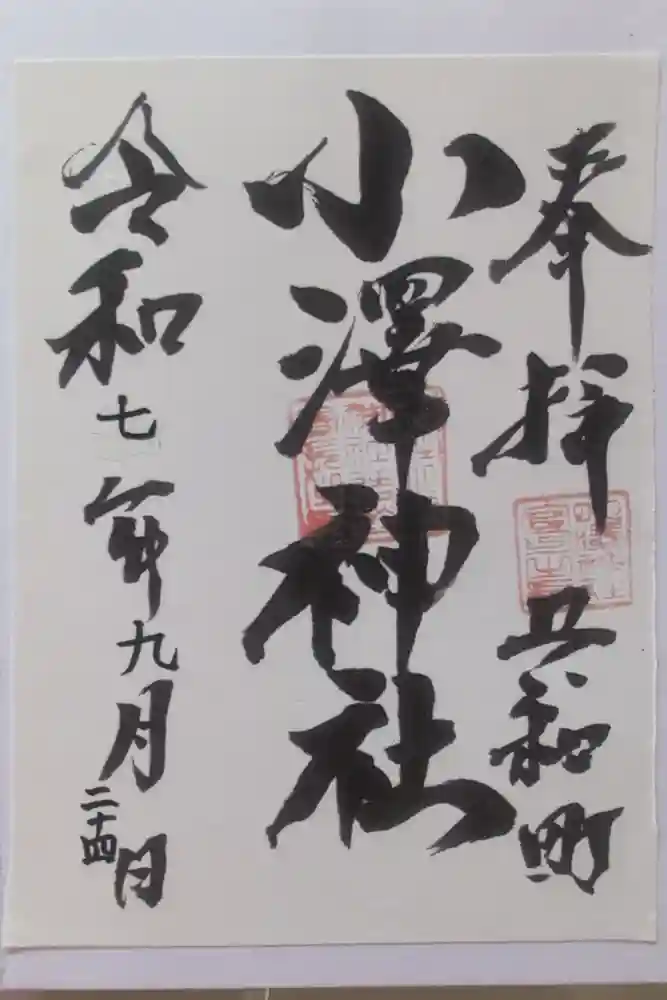 奉拝
共和町
小澤神社
令和七年九月二十四日